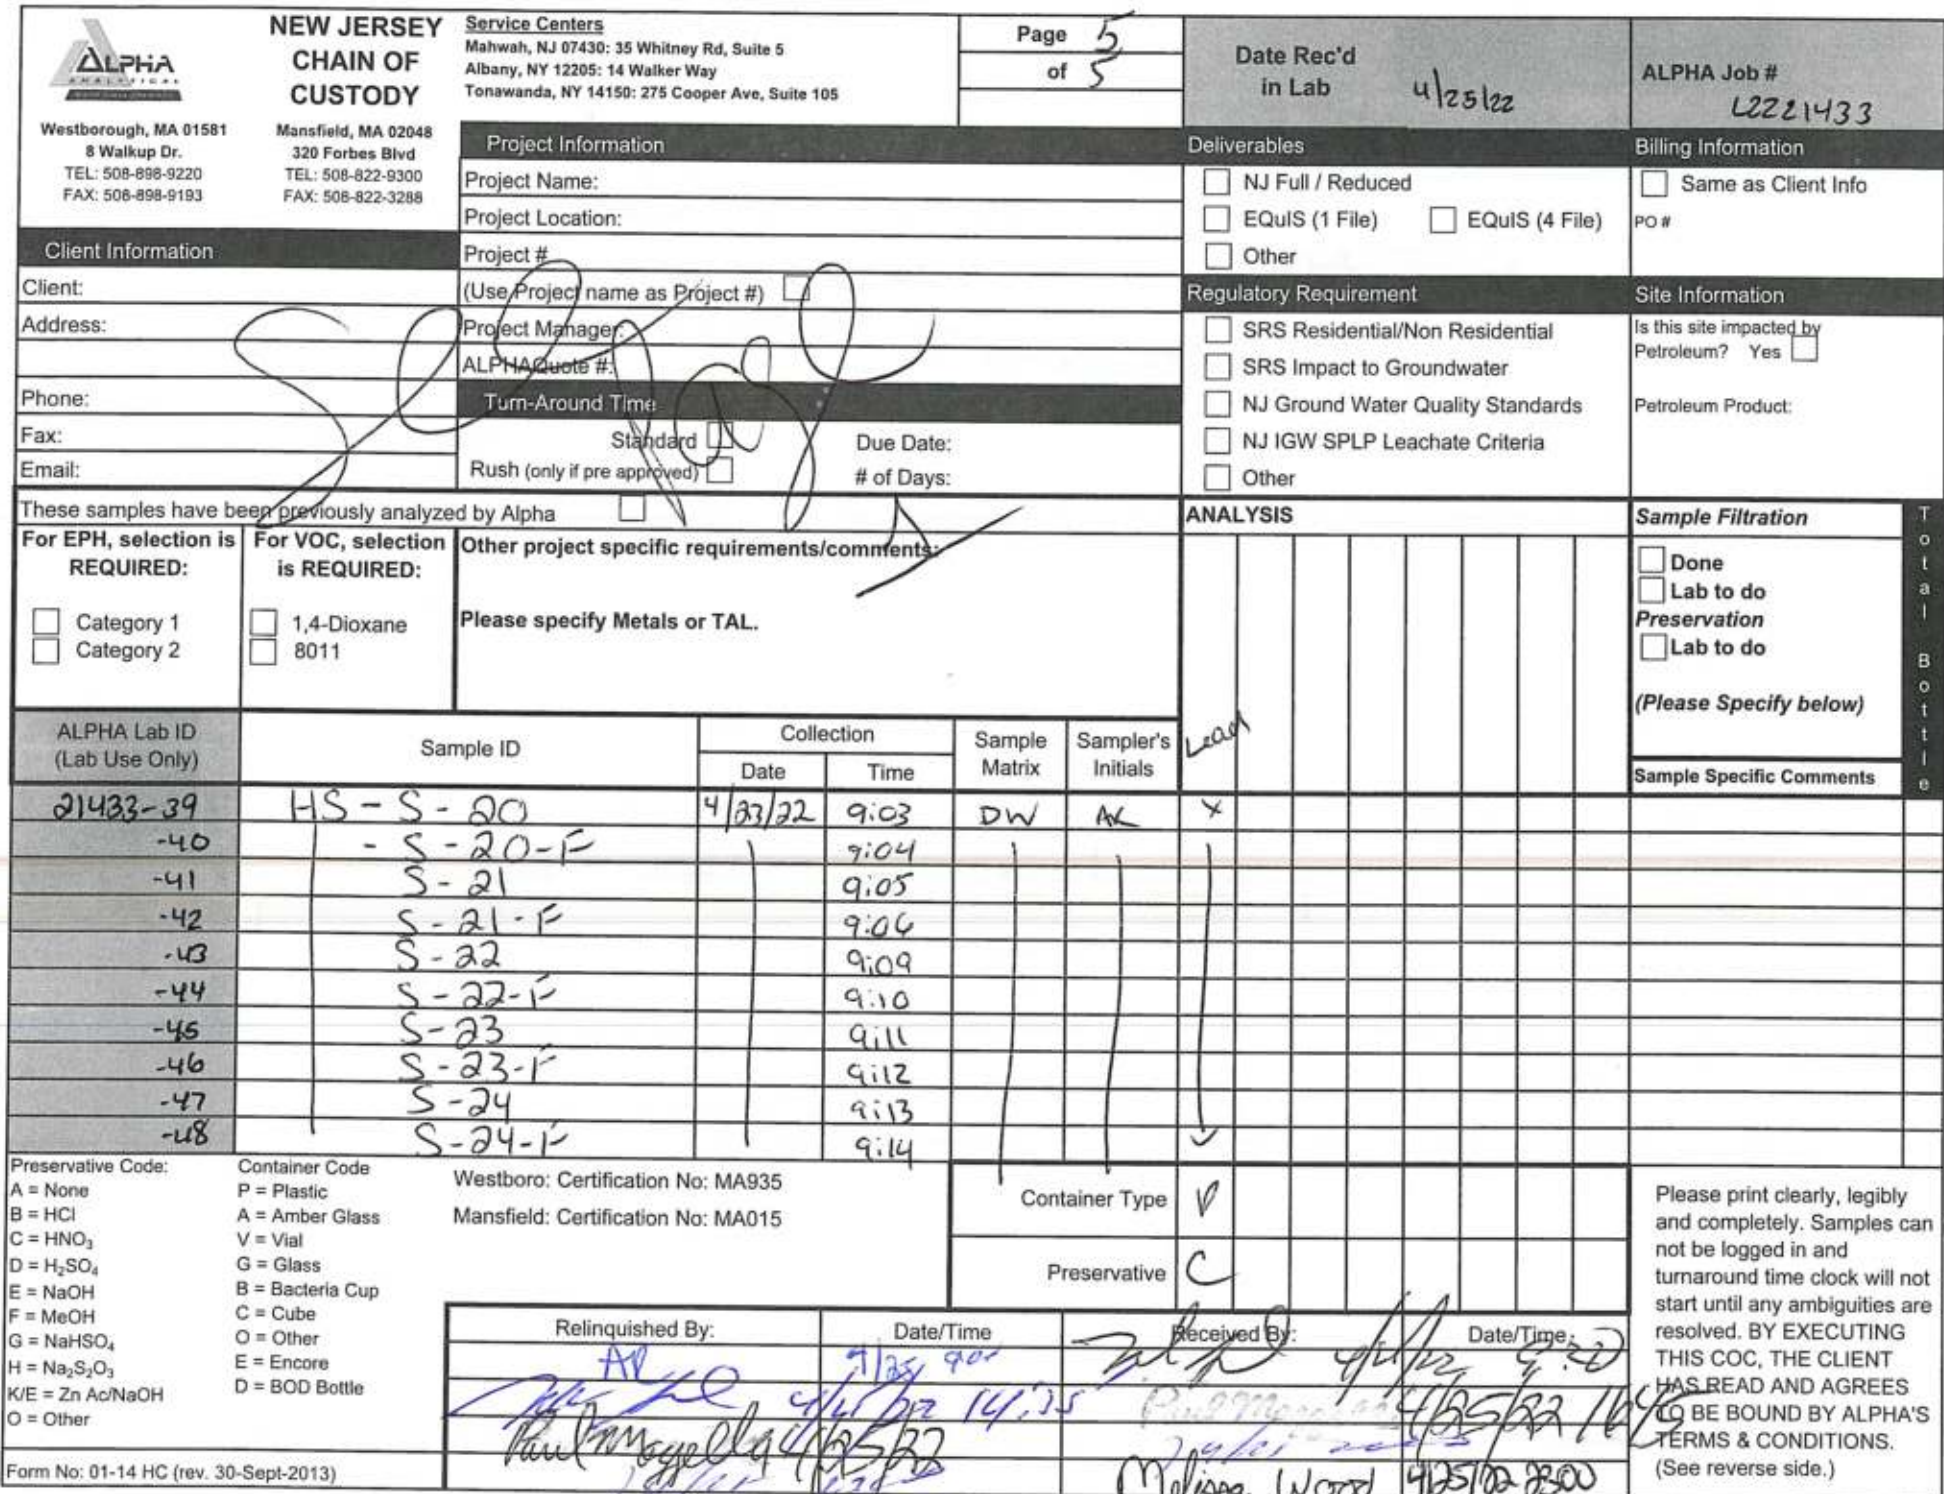 ALPHA
ANALYTICAL
NEW JERSEY
CHAIN OF
CUSTODY
Westborough, MA 01581
8 Walkup Dr.
TEL: 508-898-9220
FAX: 508-898-9193
Mansfield, MA 02048
320 Forbes Blvd
TEL: 508-822-9300
FAX: 508-822-3288
Service Centers
Mahwah, NJ 07430: 35 Whitney Rd, Suite 5
Albany, NY 12205: 14 Walker Way
Tonawanda, NY 14150: 275 Cooper Ave, Suite 105
Page 5
of 5
Date Rec'd
in Lab 4/25/22
ALPHA Job #
L2221433
Client Information
Client:
Address:
Phone:
Fax:
Email:
Project Information
Project Name:
Project Location:
Project #
(Use Project name as Project #)
Project Manager:
ALPHAQuote #:
Turn-Around Time
Standard
Due Date:
Rush (only if pre approved)
# of Days:
Deliverables
NJ Full / Reduced
EQuIS (1 File) EQuIS (4 File)
Other
Regulatory Requirement
SRS Residential/Non Residential
SRS Impact to Groundwater
NJ Ground Water Quality Standards
NJ IGW SPLP Leachate Criteria
Other
Billing Information
Same as Client Info
PO #
Site Information
Is this site impacted by
Petroleum? Yes
Petroleum Product:
These samples have been previously analyzed by Alpha
For EPH, selection is
REQUIRED:
Category 1
Category 2
For VOC, selection
is REQUIRED:
1,4-Dioxane
8011
Other project specific requirements/comments:
Please specify Metals or TAL.
ANALYSIS
Lead
Sample Filtration
Done
Lab to do
Preservation
Lab to do
(Please Specify below)
Sample Specific Comments
Total Bottle
ALPHA Lab ID
(Lab Use Only)
Sample ID
Collection
Date Time
Sample
Matrix
Sampler's
Initials
21433-39 HS - S - 20 4/23/22 9:03 DW AK X
-40 - S - 20-F 9:04
-41 S - 21 9:05
-42 S - 21 - F 9:06
-43 S - 22 9:09
-44 S - 22-F 9:10
-45 S - 23 9:11
-46 S - 23-F 9:12
-47 S - 24 9:13
-48 S - 24-F 9:14
Preservative Code:
A = None
B = HCl
C = HNO3
D = H2SO4
E = NaOH
F = MeOH
G = NaHSO4
H = Na2S2O3
K/E = Zn Ac/NaOH
O = Other
Container Code
P = Plastic
A = Amber Glass
V = Vial
G = Glass
B = Bacteria Cup
C = Cube
O = Other
E = Encore
D = BOD Bottle
Westboro: Certification No: MA935
Mansfield: Certification No: MA015
Container Type
Preservative C
Relinquished By: Date/Time Received By: Date/Time:
14:35
4/25/22
Paul Mazzella 4/25/22
Melissa Wood 4/25/22 2300
Please print clearly, legibly
and completely. Samples can
not be logged in and
turnaround time clock will not
start until any ambiguities are
resolved. BY EXECUTING
THIS COC, THE CLIENT
HAS READ AND AGREES
TO BE BOUND BY ALPHA'S
TERMS & CONDITIONS.
(See reverse side.)
Form No: 01-14 HC (rev. 30-Sept-2013)